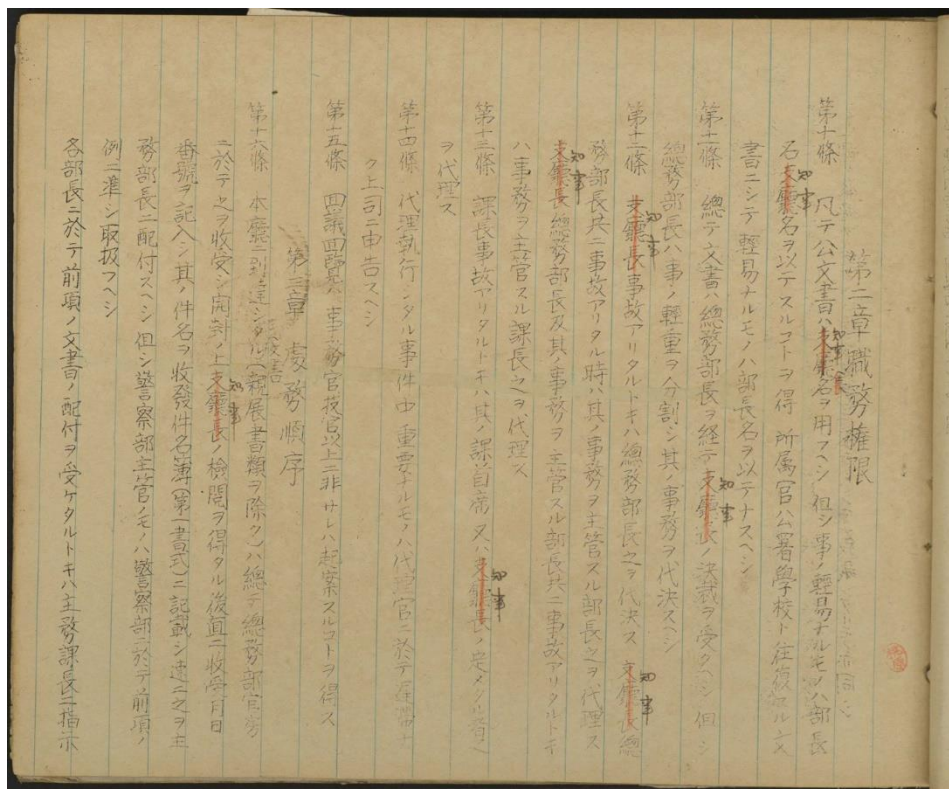 第二章 職務權限
第十條 凡テ公文書ハ支廳名ヲ用フヘシ 但シ事ノ輕易ナルモノハ部長
知事
名支廳名ヲ以テスルコトヲ得 所属官公署學校ト往復スル文
知事
書ニシテ輕易ナルモノハ部長名ヲ以テナスヘシ
第十一條 總テ文書ハ總務部長ヲ経テ支廳長ノ決裁ヲ受クヘシ 但シ
知事
總務部長ハ事ノ輕重ヲ分割シ其ノ事務ヲ代決スヘシ
第十二條 支廳長事故アリタルトキハ總務部長之ヲ代決ス 支廳長總
知事
知事
務部長共ニ事故アリタル時ハ其ノ事務ヲ主管スル部長之ヲ代理ス
支廳長總務部長及其事務ヲ主管スル部長共ニ事故アリタルトキ
知事
ハ事務ヲ主管スル課長之ヲ代理ス
第十三條 課長事故アリタルトキハ其ノ課首席又ハ支廳長ノ定メタル者之
知事
ヲ代理ス
第十四條 代理執行シタル事件中重要ナルモノハ代理官ニ於テ
ク上司ニ申告スヘシ
第十五條 回議回覽ハ事務官技官以上ニ非サレハ起案スルコトヲ得ス
第三章 處務順序
第十六條 本廳ニ到達シタル(親展書類ヲ除ク)ハ總テ總務部官房
ニ於テ之ヲ收受シ開封ノ上支廳長ノ檢閲ヲ得タル後直ニ收受月日
知事
番號ヲ記入シ其ノ件名ヲ收發件名簿(第一書式)ニ記載シ速ニ之ヲ主
務部長ニ配付スヘシ 但シ警察部主管ノモノハ警察部ニ於テ前項ノ
例ニ準シ取扱フヘシ
各部長ニ於テ前項ノ文書ノ配付ヲ受ケタルトキハ主務課長ニ指示